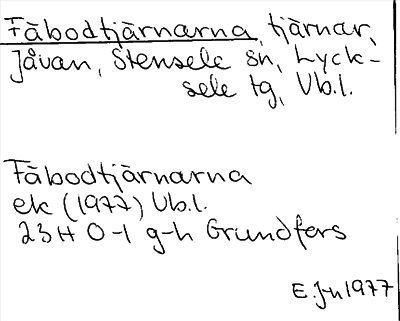 Fäbodtjärnarna, tjärnar,
Jåvan, Stensele sn, Lyck-
sele tg, Vb.l.
Fäbodtjärnarna
ek (1977) Vb.l.
23H 0-1 g-h Grundfors
E. Jn 1977